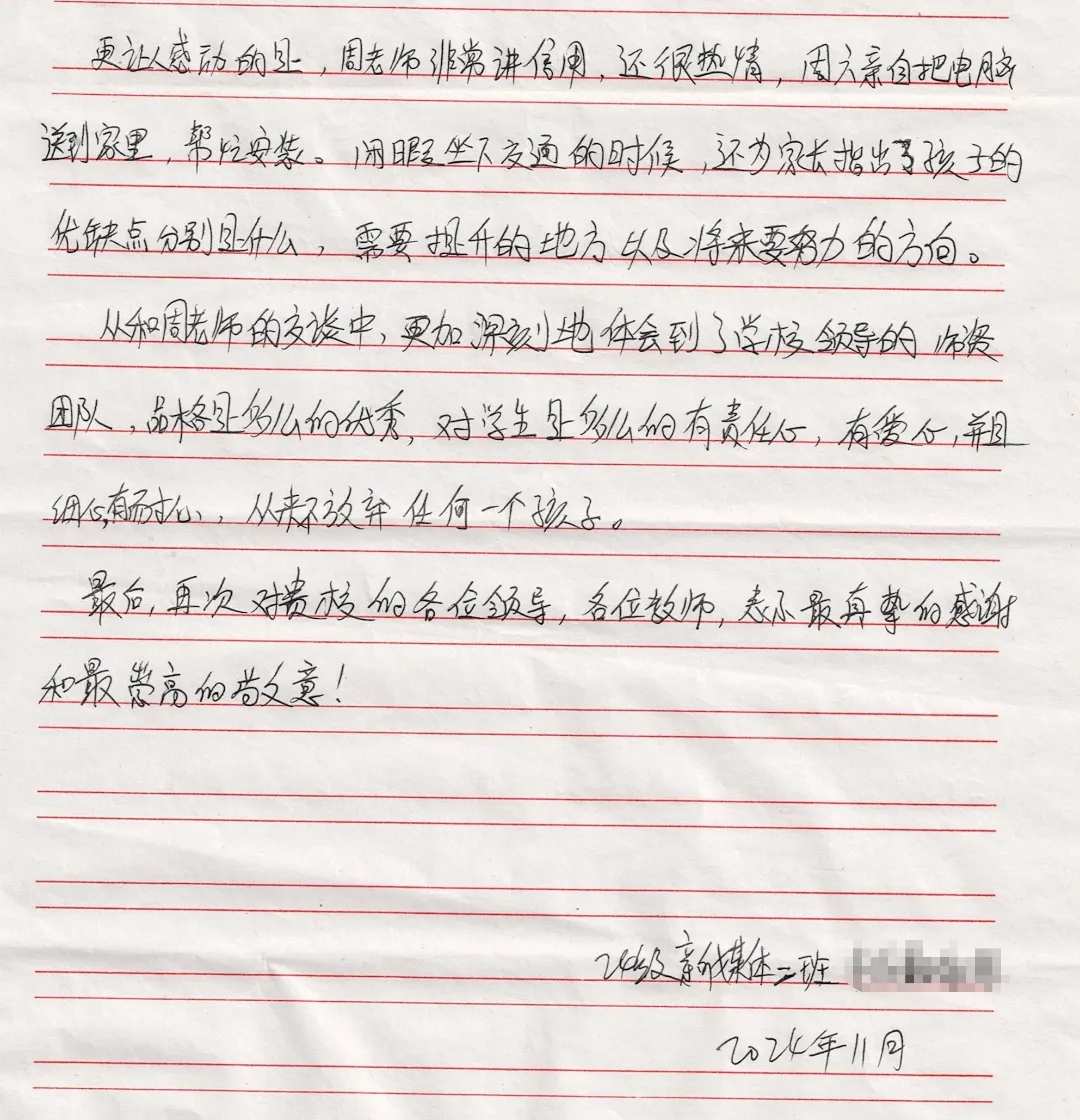 更让人感动的是，周老师非常讲信用，还很热情，周六亲自把电脑
送到家里，帮忙安装。闲暇坐下交通的时候，还为家长指出了孩子的
优缺点分别是什么，需要提升的地方以及将来要努力的方向。
从和周老师的交谈中，更加深刻地体会到了学校领导的师资
团队，品格是多么的优秀，对学生是多么的有责任心，有爱心，并且
细心，有耐心，从来不放弃任何一个孩子。
最后，再次对贵校的各位领导，各位教师，表示最真挚的感谢
和最崇高的敬意！
24级新媒体二班
2024年11月